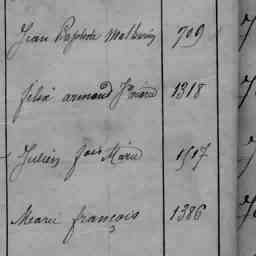 Jean Baptiste Mathurin 709
félix armand 1318
Julien fois Marie 1517
Marie françois 1386